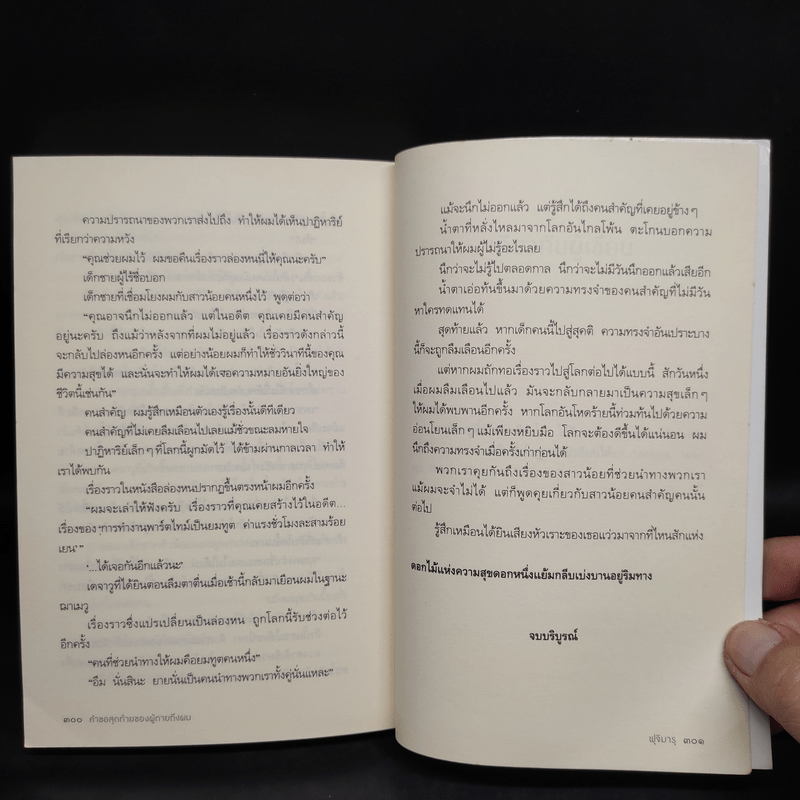 ความปรารถนาของพวกเราส่งไปถึง ทำให้ผมได้เห็นปาฏิหาริย์
ที่เรียกว่าความหวัง
“คุณช่วยผมไว้ ผมขอคืนเรื่องราวล่องหนนี้ให้คุณนะครับ”
เด็กชายผู้ไร้ชื่อบอก
เด็กชายที่เชื่อมโยงผมกับสาวน้อยคนหนึ่งไว้ พูดต่อว่า
“คุณอาจนึกไม่ออกแล้ว แต่ในอดีต คุณเคยมีคนสำคัญ
อยู่นะครับ ถึงแม้ว่าหลังจากที่ผมไม่อยู่แล้ว เรื่องราวดังกล่าวนี้
จะกลับไปล่องหนอีกครั้ง แต่อย่างน้อยผมก็ทำให้ชั่ววินาทีนี้ของคุณ
มีความสุขได้ และนั่นจะทำให้ผมได้เจอความหมายอันยิ่งใหญ่ของ
ชีวิตนี้เช่นกัน”
คนสำคัญ ผมรู้สึกเหมือนตัวเองรู้เรื่องนั้นดีทีเดียว
คนสำคัญที่ไม่เคยลืมเลือนไปเลยแม้ชั่วขณะลมหายใจ
ปาฏิหาริย์เล็กๆ ที่โลกนี้ผูกมัดไว้ ได้ข้ามผ่านกาลเวลา ทำให้
เราได้พบกัน
เรื่องราวในหนังสือล่องหนปรากฏขึ้นตรงหน้าผมอีกครั้ง
“ผมจะเล่าให้ฟังครับ เรื่องราวที่คุณเคยสร้างไว้ในอดีต...
เรื่องของ ‘การทำงานพาร์ตไทม์เป็นยมทูต ค่าแรงชั่วโมงละสามร้อย
เยน’ ”
‘...ได้เจอกันอีกแล้วนะ’
เดจาวูที่ได้ยินตอนลืมตาตื่นเมื่อเช้านี้กลับมาเยือนผมในฐานะ
ฌาเมวู
เรื่องราวซึ่งแปรเปลี่ยนเป็นล่องหน ถูกโลกนี้รับช่วงต่อไว้
อีกครั้ง
“คนที่ช่วยนำทางให้ผมคือยมทูตคนหนึ่ง”
“อืม นั่นสินะ ยายนั่นเป็นคนนำทางพวกเราทั้งคู่นั่นแหละ”
๓๐๐ คำขอสุดท้ายของผู้ตายถึงผม
แม้จะนึกไม่ออกแล้ว แต่รู้สึกได้ถึงคนสำคัญที่เคยอยู่ข้างๆ
น้ำตาที่หลั่งไหลมาจากโลกอันไกลโพ้น ตะโกนบอกความ
ปรารถนาให้ผมผู้ไม่รู้อะไรเลย
นึกว่าจะไม่รู้ไปตลอดกาล นึกว่าจะไม่มีวันนึกออกแล้วเสียอีก
น้ำตาเอ่อท้นขึ้นมาด้วยความทรงจำของคนสำคัญที่ไม่มีวัน
หาใครทดแทนได้
สุดท้ายแล้ว หากเด็กคนนี้ไปสู่สุคติ ความทรงจำอันเปราะบาง
นี้ก็จะถูกลืมเลือนอีกครั้ง
แต่หากผมถักทอเรื่องราวไปสู่โลกต่อไปได้แบบนี้ สักวันหนึ่ง
เมื่อผมลืมเลือนไปแล้ว มันจะกลับกลายมาเป็นความสุขเล็กๆ
ให้ผมได้พบพานอีกครั้ง หากโลกอันโหดร้ายนี้ท่วมท้นไปด้วยความ
อ่อนโยนเล็กๆ แม้เพียงหยิบมือ โลกจะต้องดีขึ้นได้แน่นอน ผม
นึกถึงความทรงจำเมื่อครั้งเก่าก่อนได้
พวกเราคุยกันถึงเรื่องของสาวน้อยที่ช่วยนำทางพวกเรา
แม้ผมจะจำไม่ได้ แต่ก็พูดคุยเกี่ยวกับสาวน้อยคนสำคัญคนนั้น
ต่อไป
รู้สึกเหมือนได้ยินเสียงหัวเราะของเธอแว่วมาจากที่ไหนสักแห่ง
ดอกไม้แห่งความสุขดอกหนึ่งแย้มกลีบเบ่งบานอยู่ริมทาง
จบบริบูรณ์
ฟุจิมารุ ๓๐๑